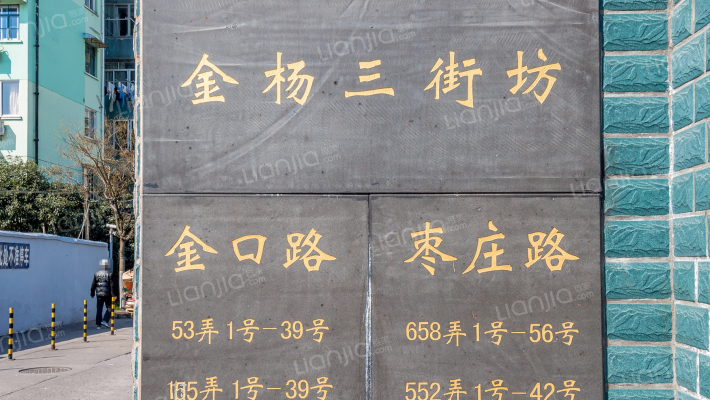 金杨三街坊
金口路
53弄 1号-39号
105弄 1号-39号
枣庄路
658弄 1号-56号
552弄 1号-42号
Lianjia.com